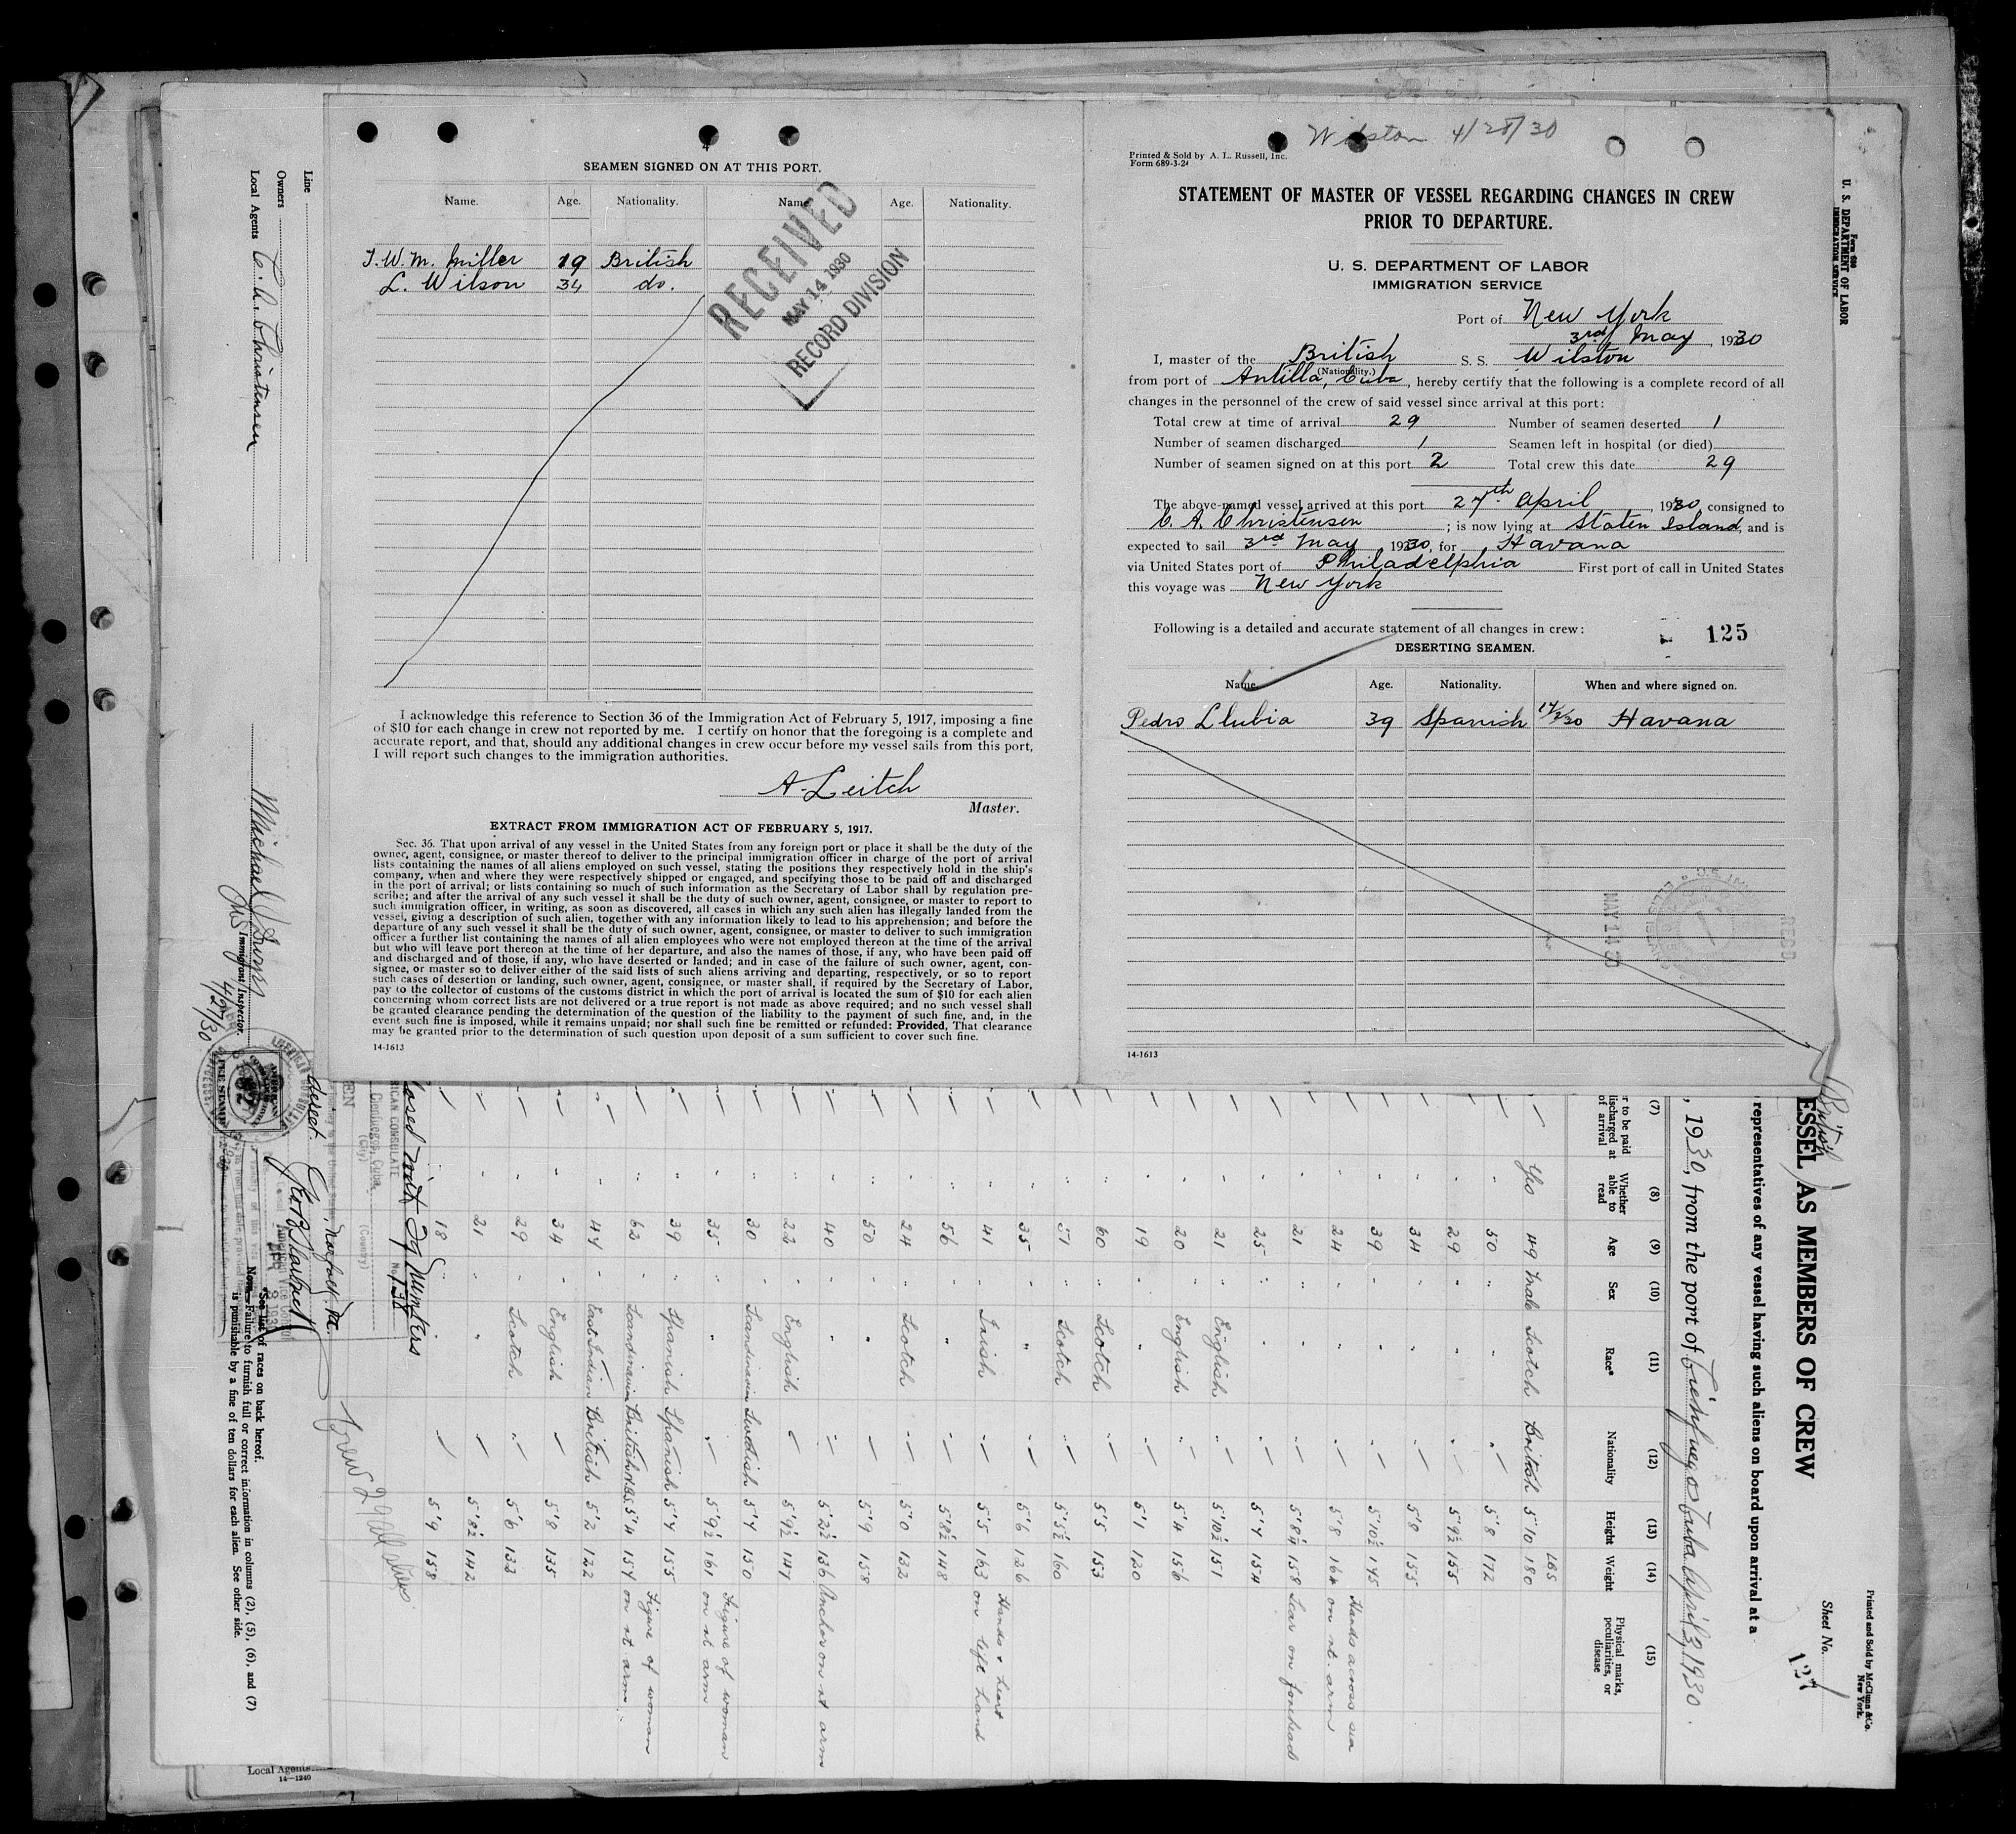 4
SEAMEN SIGNED ON AT THIS PORT.
Name. Age. Nationality. Name. Age. Nationality.
J. W. M. Miller 19 British
L. Wilson 34 do.
RECEIVED
MAY 14 1930
RECORD DIVISION
I acknowledge this reference to Section 36 of the Immigration Act of February 5, 1917, imposing a fine
of $10 for each change in crew not reported by me. I certify on honor that the foregoing is a complete and
accurate report, and that, should any additional changes in crew occur before my vessel sails from this port,
I will report such changes to the immigration authorities.
A. Leitch
Master.
EXTRACT FROM IMMIGRATION ACT OF FEBRUARY 5, 1917.
Sec. 36. That upon arrival of any vessel in the United States from any foreign port or place it shall be the duty of the
owner, agent, consignee, or master thereof to deliver to the principal immigration officer in charge of the port of arrival
lists containing the names of all aliens employed on such vessel, stating the positions they respectively hold in the ship's
company, when and where they were respectively shipped or engaged, and specifying those to be paid off and discharged
in the port of arrival; or lists containing so much of such information as the Secretary of Labor shall by regulation pre-
scribe; and after the arrival of any such vessel it shall be the duty of such owner, agent, consignee, or master to report to
such immigration officer, in writing, as soon as discovered, all cases in which any such alien has illegally landed from the
vessel, giving a description of such alien, together with any information likely to lead to his apprehension; and before the
departure of any such vessel it shall be the duty of such owner, agent, consignee, or master to deliver to such immigration
officer a further list containing the names of all alien employees who were not employed thereon at the time of the arrival
but who will leave port thereon at the time of her departure, and also the names of those, if any, who have been paid off
and discharged and of those, if any, who have deserted or landed; and in case of the failure of such owner, agent, con-
signee, or master so to deliver either of the said lists of such aliens arriving and departing, respectively, or so to report
such cases of desertion or landing, such owner, agent, consignee, or master shall, if required by the Secretary of Labor,
pay to the collector of customs of the customs district in which the port of arrival is located the sum of $10 for each alien
concerning whom correct lists are not delivered or a true report is not made as above required; and no such vessel shall
be granted clearance pending the determination of the question of the liability to the payment of such fine, and, in the
event such fine is imposed, while it remains unpaid; nor shall such fine be remitted or refunded: Provided, That clearance
may be granted prior to the determination of such question upon deposit of a sum sufficient to cover such fine.
14-1613
Wilston 4/28/30
Printed & Sold by A. L. Russell, Inc.
Form 689-3-24
STATEMENT OF MASTER OF VESSEL REGARDING CHANGES IN CREW
PRIOR TO DEPARTURE.
U. S. DEPARTMENT OF LABOR
IMMIGRATION SERVICE
Port of New York
3rd May, 1930
I, master of the British S. S. Wilston
(Nationality.)
from port of Antilla, Cuba, hereby certify that the following is a complete record of all
changes in the personnel of the crew of said vessel since arrival at this port:
Total crew at time of arrival 29 Number of seamen deserted 1
Number of seamen discharged 1 Seamen left in hospital (or died)
Number of seamen signed on at this port 2 Total crew this date 29
The above-named vessel arrived at this port 27th April, 1930, consigned to
C. A. Christensen; is now lying at Staten Island, and is
expected to sail 3rd May, 1930, for Havana
via United States port of Philadelphia First port of call in United States
this voyage was New York
Following is a detailed and accurate statement of all changes in crew:
125
DESERTING SEAMEN.
Name. Age. Nationality. When and where signed on.
Pedro Llubia 39 Spanish Havana
MAY 14 30
REC'D
14-1613
Form 680
U. S. DEPARTMENT OF LABOR
IMMIGRATION SERVICE
Line
Owners
Local Agents C. A. Christensen
Immigrant Inspector.
4/27/30
Printed and Sold by McClunn & Co.
New York.
Sheet No.
127
(British)
ESSEL AS MEMBERS OF CREW
representatives of any vessel having such aliens on board upon arrival at a
, 1930, from the port of Cienfuegos Cuba April 3, 1930.
(7) (8) (9) (10) (11) (12) (13) (14) (15)
r to be paid
ischarged at
of arrival
Whether
able to
read
Age Sex Race* Nationality Height Weight
Physical marks,
peculiarities, or
disease
LBS
Yes 49 Male Scotch British 5 10 180
50 " 5'8 172
29 " 5'9½ 155
34 " 5'8 155
39 " 5'10½ 175
24 " 5'8 164 Hands across sea on rt. arm
21 " 5'8¼ 158 Scar on forehead
25 " 5'7 154
21 " English 5'10½ 151
20 " English 5'4 156
19 " 5'1 120
60 " Scotch 5'5 153
51 " Scotch 5'5½ 160
35 " 5'6 126
41 " Irish 5'5 163 Hands & heart on left hand
56 " 5'8½ 148
24 " Scotch 5'0 132
50 " 5'9 158
40 " 5'2½ 136 Anchor on rt arm
22 " English 5'9½ 147
30 " Scandinavin Swedish 5'7 150
35 " 5'9½ 161 Figure of woman on rt arm
39 " Spanish Spanish 5'7 155
62 " Scandinavin British 5'4 157 Figure of woman on rt arm
47 " East Indian British 5'2 122
34 " English 5'8 135
29 " Scotch 5'6 133
21 " 5'8½ 142
18 " 5'9 158
AMERICAN CONSULATE
Cienfuegos, Cuba.
(City) (County)
No. 138
Norfolk, Va.
*See list of races on back hereof.
Note.—Failure to furnish full or correct information in columns (2), (5), (6), and (7)
is punishable by a fine of ten dollars for each alien. See other side.
Local Agents
14—1240